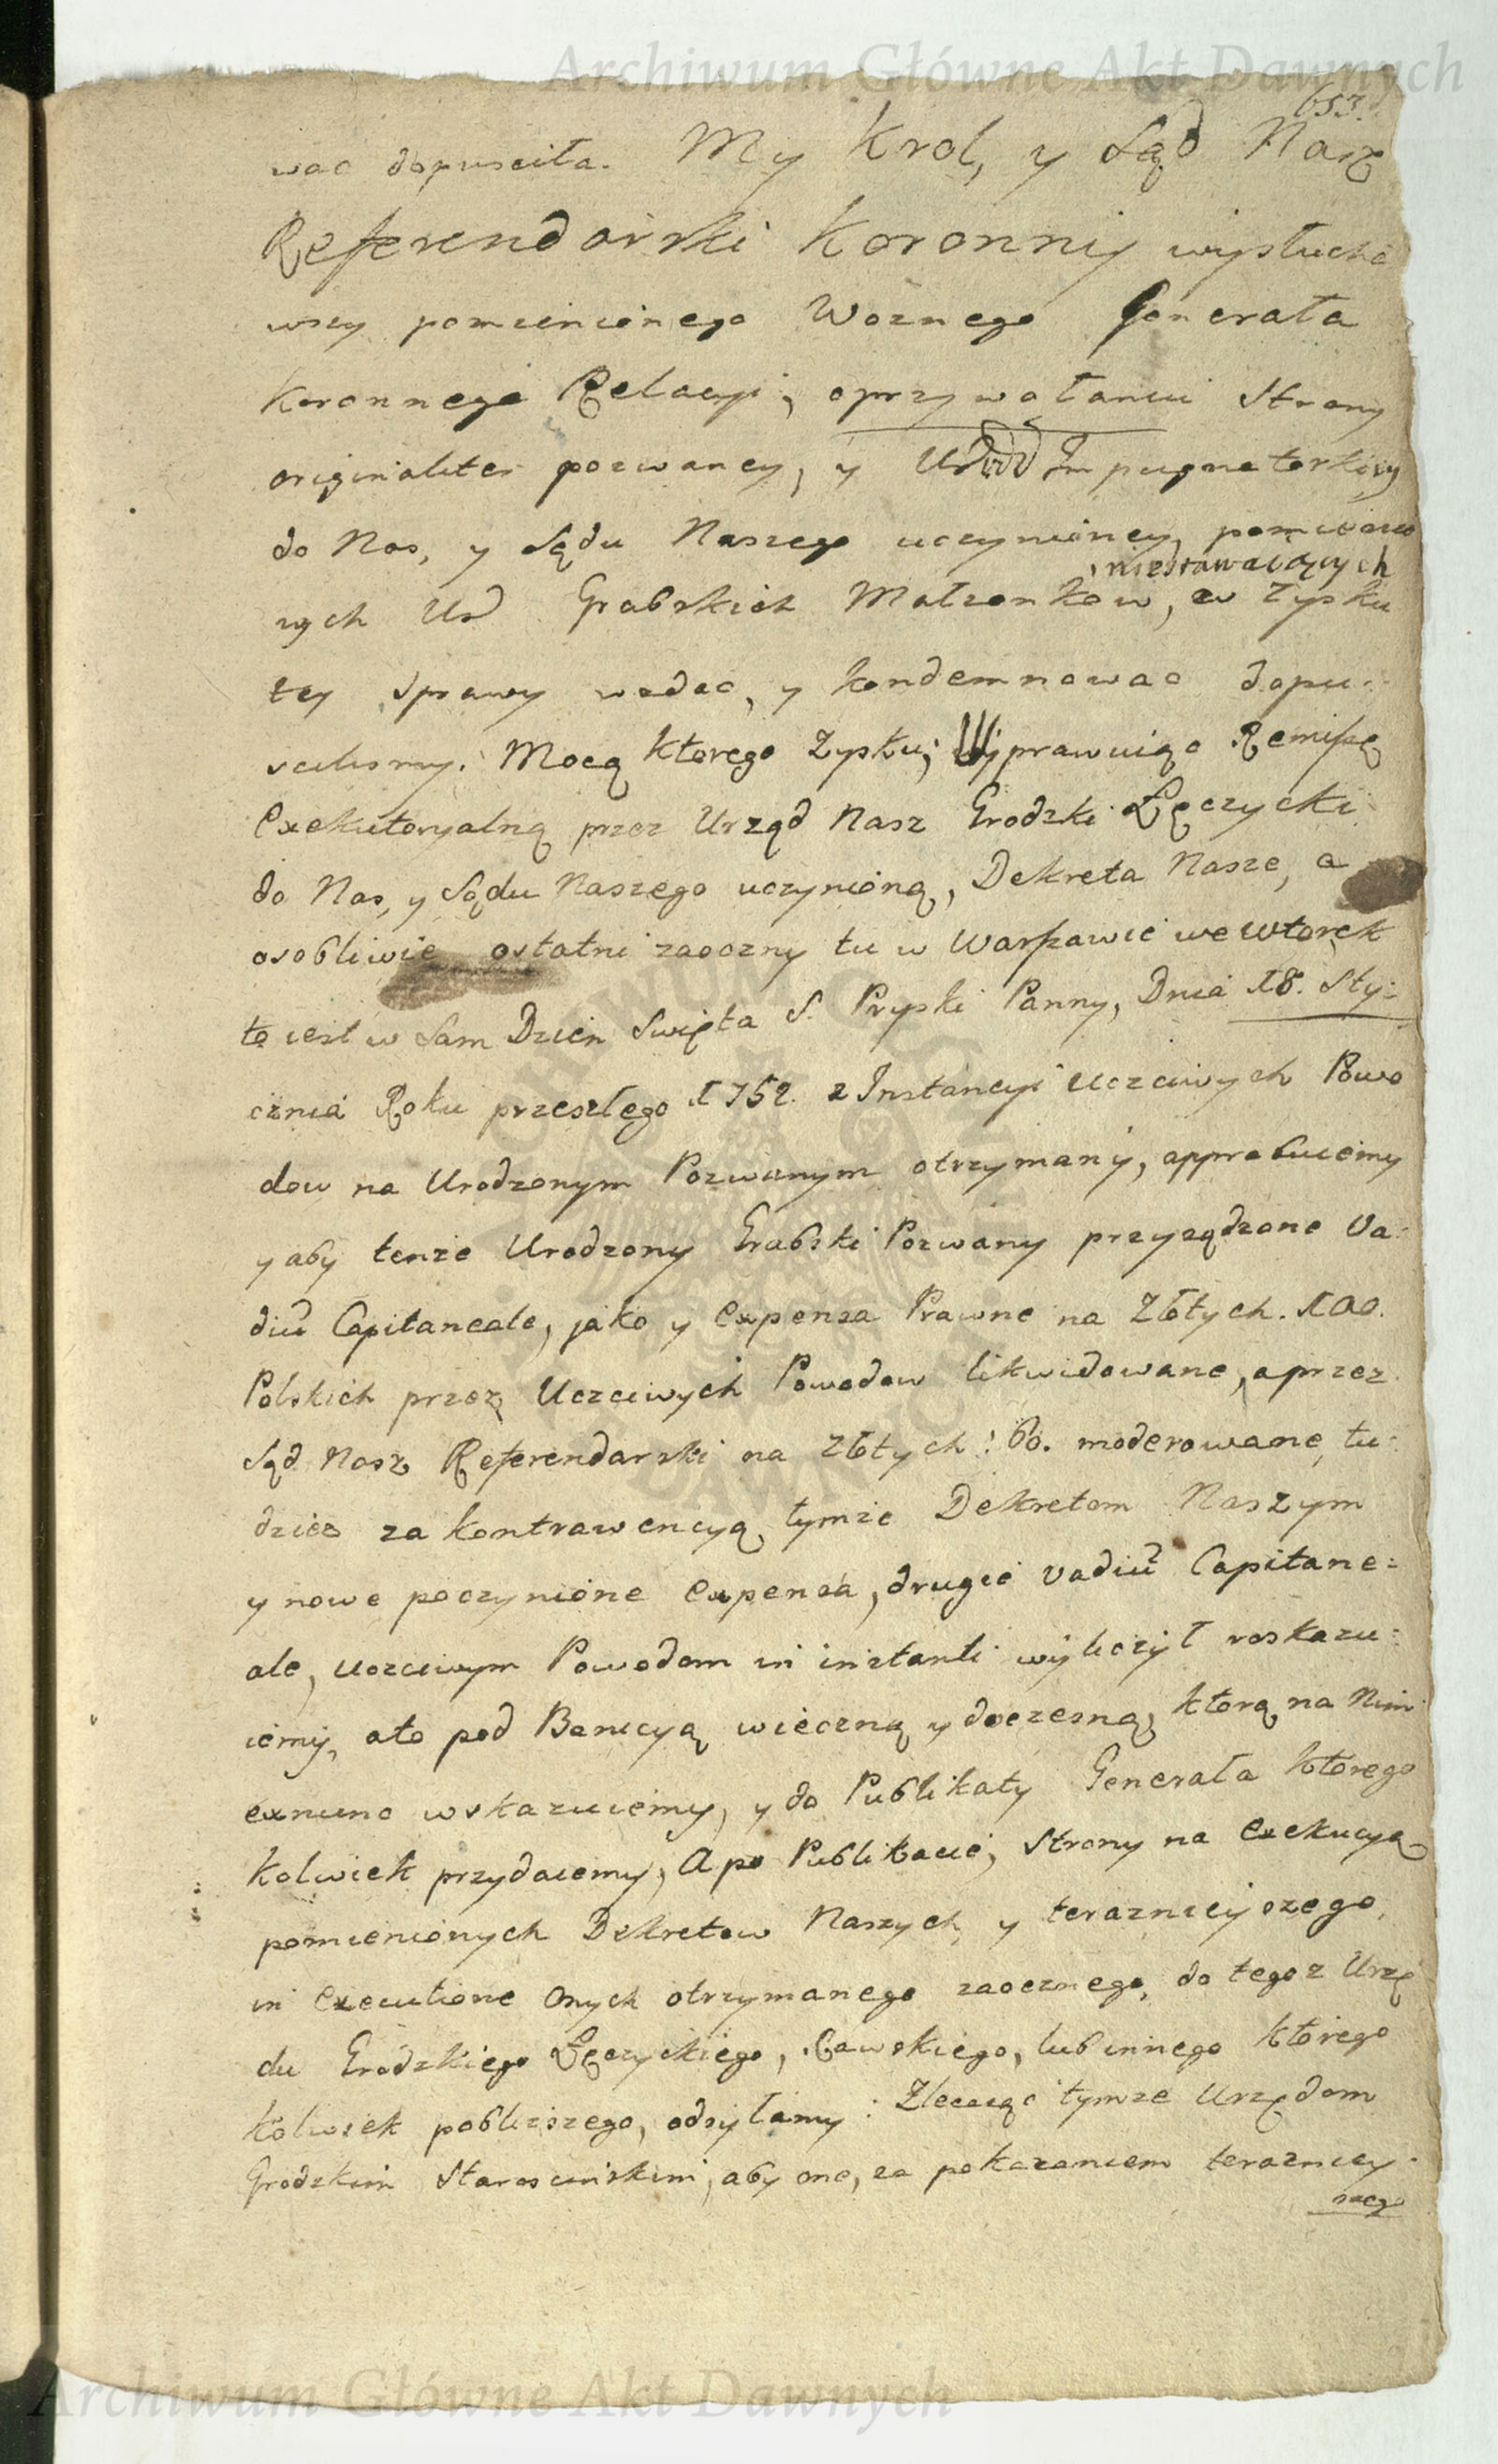 Archiwum Główne Akt Dawnych
653.
wac dopusciła. My Krol, y Sąd Nasz
Referendarski Koronny wysłucha
wszy pomienionego Woznego Generała
Koronnego Relacyi, o przywołaniu Strony
originaliter pozwaney, y Impugnatorkiey
do Nas, y Sądu Naszego uczynioney, pomienio
niestawaiących
nych Ur Grabskich Małzonkow, w zysku
tey sprawy wzdac, y kondemnowac dopu:
scilismy. Mocą ktorego Zysku, Wyprawuiąc Remissę
Exekutoryalną przez Urząd Nasz Grodzki Łęczycki
do Nas, y Sądu Naszego uczynioną, Dekreta Nasze, a
osobliwie ostatni zaoczny tu w Warszawie we Wtorek
to iest w Sam Dzien Swięta S. Pryski Panny, Dnia 18. Sty:
cznia Roku przeszłego 1752. z Instancyi Uczciwych Powo
dow na Urodzonym Pozwanym otrzymany, approbuiemy
y aby tenże Urodzony Grabski Pozwany przysądzone Va:
diu Capitaneale, jako y Expensa Prawne na Złotych. 100.
Polskich przez Uczciwych Powodow likwidowane, a przez
Sąd Nasz Referendarski na Złotych: 60. moderowane, tu:
dziez za kontrawencyą tymze Dekretom Naszym
y nowe poczynione expensa, drugie Vadiu Capitane:
ale, uczciwym Powodom in instanti wyliczył roskazu:
iemy, a to pod Banicyą wieczną y doczesną, ktorą na Nim
exnunc wskazuiemy, y do Publikaty Generała ktorego
kolwiek przydaiemy, A po Publikacie, Strony na exekucyą
pomienionych Dekretow Naszych, y teraznieyszego,
in Executione Onych otrzymanego zaocznego, do tegoz Urzę
du Grodzkiego Łęczyckiego, Rawskiego, lub innego ktorego
kolwiek pobliższego, odsyłamy: Zlecaiąc tymze Urzędom
Grodzkim Staroscinskim, aby one, za pokazaniem terazniey:
szego
Archiwum Główne Akt Dawnych